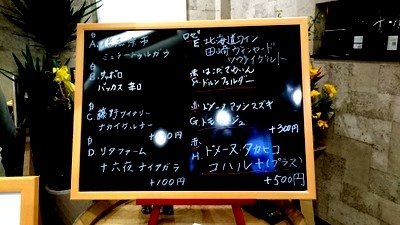 白
A.
ミュラートゥルガウ
白
B.サッポロ
バッカス 辛口
白
C.藤野ワイナリー
ナカイグルナー
+ 円
白
D.リタファーム
十六夜 ナイアガラ
+100円
ロゼ
E.北海道ワイン
田崎ヴィンヤード
ツヴァイゲルト
赤 はこだてわいん
F.ドルンフェルダー
赤 ドメーヌ アツシスズキ
G.トモ ジュ
+300円
赤 ドメーヌ・タカヒコ
H.
コハル+(プラス)
+500円